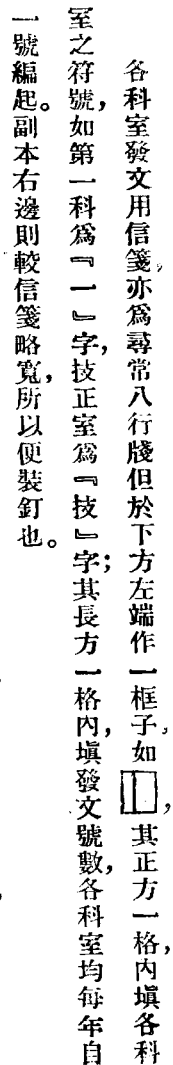 各科室發文用信箋,亦爲尋常八行牋但於下方左端作一框子,如,其正方一格,內塡各科
室之符號,如第一科爲『一』字,技正室爲『技』字;其長方一格內,塡發文號數,各科室均每年自
一號編起。副本右邊則較信箋略寬,所以便裝釘也。